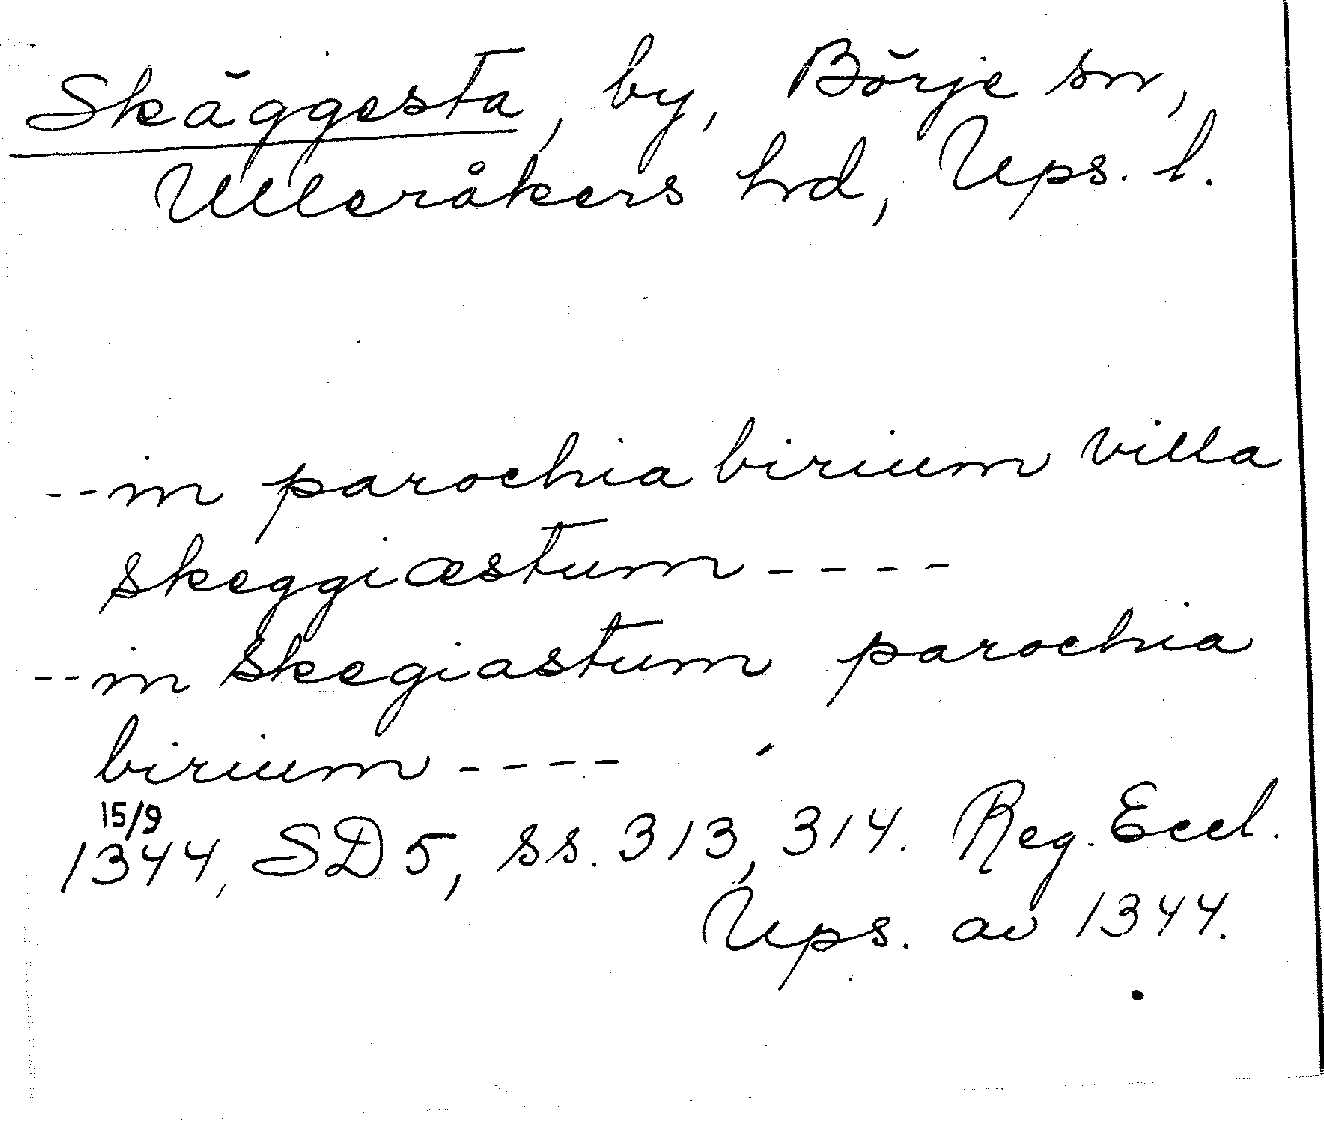 Skäggesta, by, Börje sn,
Ulleråkers hrd, Ups. l.
--in parochia birium villa
skeggiæstum----
--in skegiastum parochia
birium----
15/9
1344, SD 5, ss. 313, 314. Reg. Eccl.
Ups. av 1344.